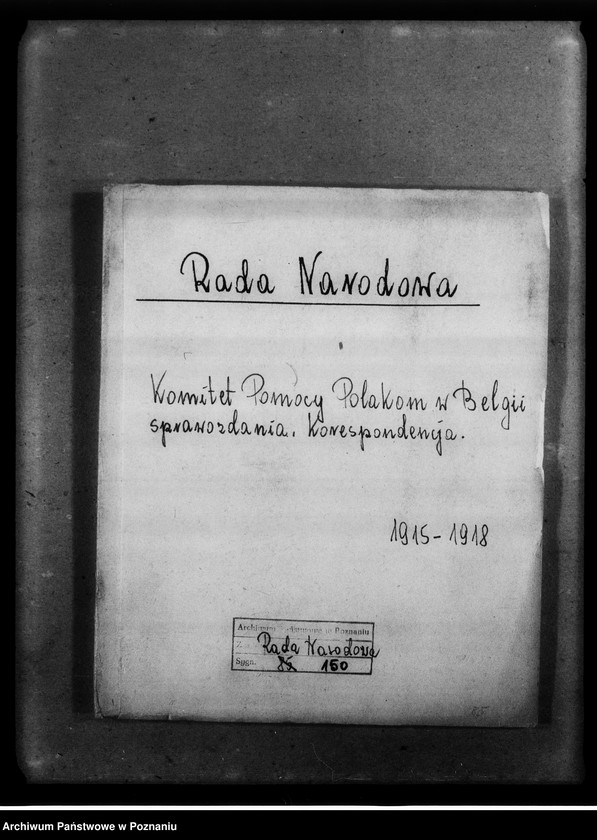 Rada Narodowa
Komitet Pomocy Polakom w Belgii
sprawozdania. Korespondencja.
1915-1918
Archiwum Państwowe w Poznaniu
Rada Narodowa
Sygn. 85 150
Archiwum Państwowe w Poznaniu